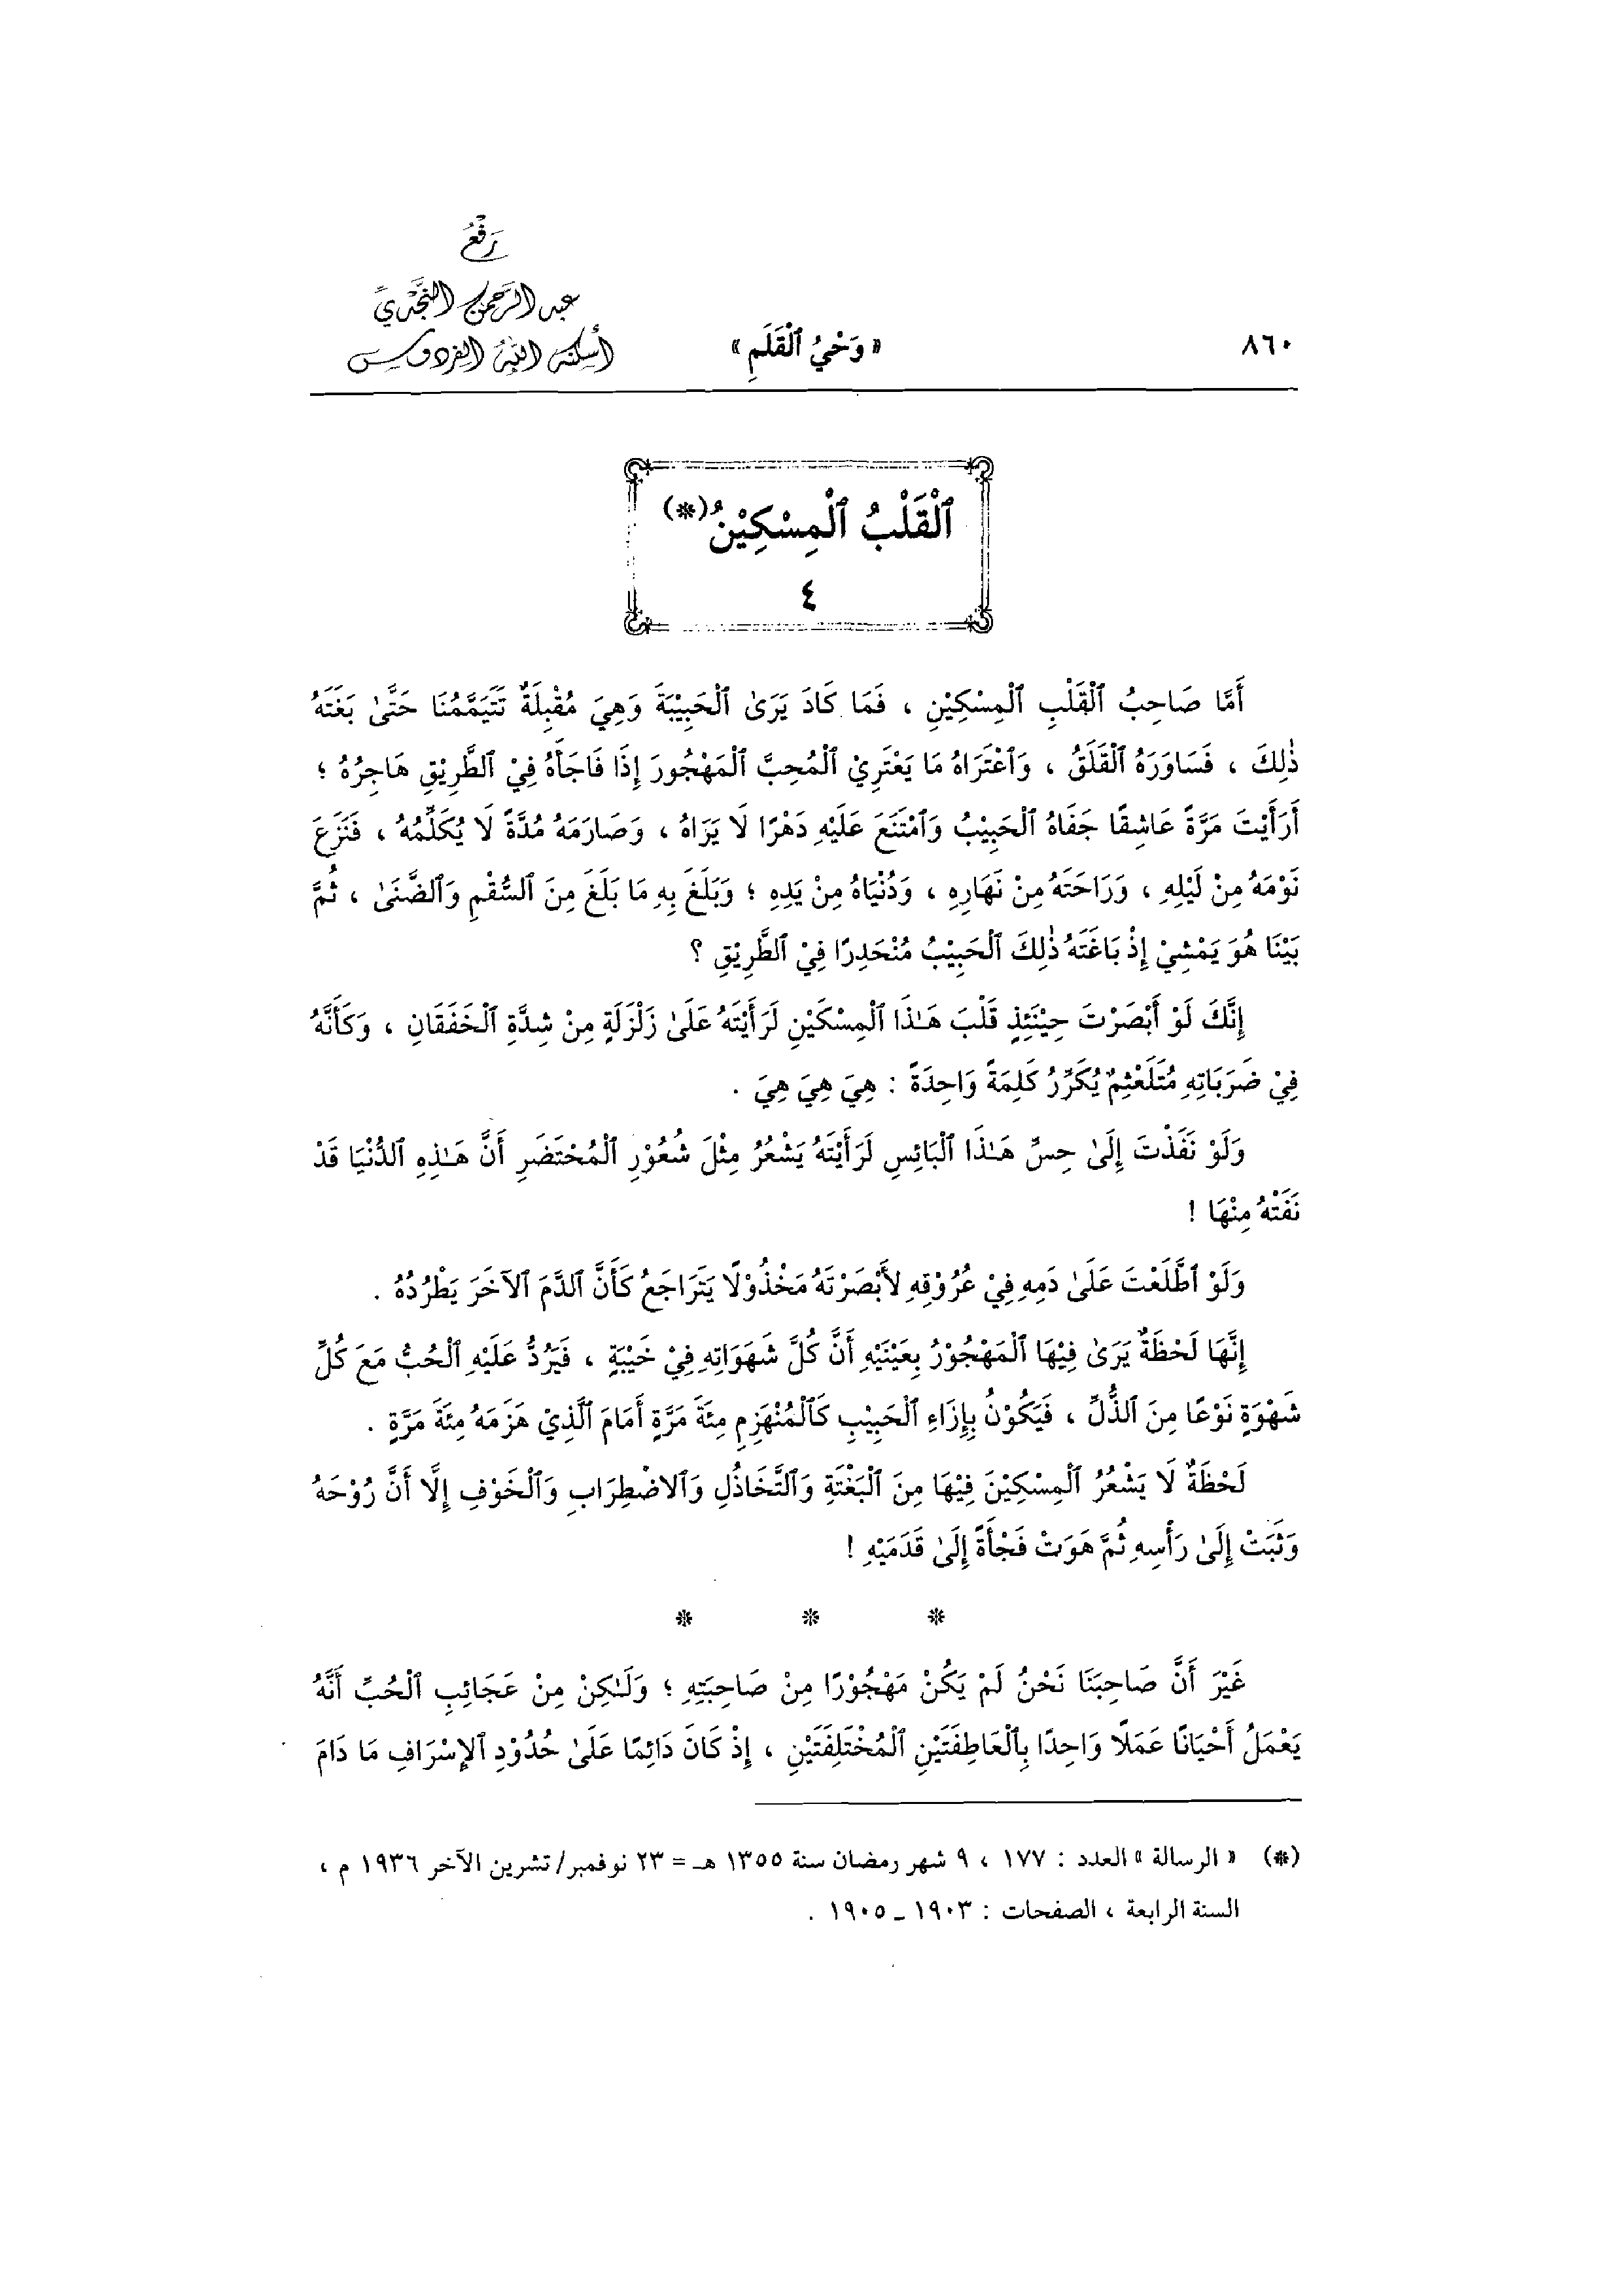 رَفْعُ
عبد الرَّحمن النَّجْديّ
أسكنه الله الفردوس
٨٦٠
« وَحْيُ ٱلْقَلَمِ »
ٱلْقَلْبُ ٱلْمِسْكِيْنُ(*)
٤
أَمَّا صَاحِبُ ٱلْقَلْبِ ٱلْمِسْكِيْنِ ، فَمَا كَادَ يَرَىٰ ٱلْحَبِيْبَةَ وَهِيَ مُقْبِلَةٌ تَتَيَمَّمُنَا حَتَّىٰ بَغَتَهُ
ذٰلِكَ ، فَسَاوَرَهُ ٱلْقَلَقُ ، وَٱعْتَرَاهُ مَا يَعْتَرِيْ ٱلْمُحِبَّ ٱلْمَهْجُورَ إِذَا فَاجَأَهُ فِيْ ٱلطَّرِيْقِ هَاجِرُهُ ؛
أَرَأَيْتَ مَرَّةً عَاشِقًا جَفَاهُ ٱلْحَبِيْبُ وَٱمْتَنَعَ عَلَيْهِ دَهْرًا لَا يَرَاهُ ، وَصَارَمَهُ مُدَّةً لَا يُكَلِّمُهُ ، فَنَزَعَ
نَوْمَهُ مِنْ لَيْلِهِ ، وَرَاحَتَهُ مِنْ نَهَارِهِ ، وَدُنْيَاهُ مِنْ يَدِهِ ؛ وَبَلَغَ بِهِ مَا بَلَغَ مِنَ ٱلسُّقْمِ وَٱلضَّنَىٰ ، ثُمَّ
بَيْنَا هُوَ يَمْشِيْ إِذْ بَاغَتَهُ ذٰلِكَ ٱلْحَبِيْبُ مُنْحَدِرًا فِيْ ٱلطَّرِيْقِ ؟
إِنَّكَ لَوْ أَبْصَرْتَ حِيْنَئِذٍ قَلْبَ هَـٰذَا ٱلْمِسْكَيْنِ لَرَأَيْتَهُ عَلَىٰ زَلْزَلَةٍ مِنْ شِدَّةِ ٱلْخَفَقَانِ ، وَكَأَنَّهُ
فِيْ ضَرَبَاتِهِ مُتَلَعْثِمٌ يُكَرِّرُ كَلِمَةً وَاحِدَةً : هِيَ هِيَ هِيَ .
وَلَوْ نَفَذْتَ إِلَىٰ حِسِّ هَـٰذَا ٱلْبَائِسِ لَرَأَيْتَهُ يَشْعُرُ مِثْلَ شُعُوْرِ ٱلْمُحْتَضَرِ أَنَّ هَـٰذِهِ ٱلدُّنْيَا قَدْ
نَفَتْهُ مِنْهَا !
وَلَوْ ٱطَّلَعْتَ عَلَىٰ دَمِهِ فِيْ عُرُوْقِهِ لأَبْصَرْتَهُ مَخْذُوْلًا يَتَرَاجَعُ كَأَنَّ ٱلدَّمَ ٱلآخَرَ يَطْرُدُهُ .
إِنَّهَا لَحْظَةٌ يَرَىٰ فِيْهَا ٱلْمَهْجُوْرُ بِعَيْنَيْهِ أَنَّ كُلَّ شَهَوَاتِهِ فِيْ خَيْبَةٍ ، فَيَرُدُّ عَلَيْهِ ٱلْحُبُّ مَعَ كُلِّ
شَهْوَةٍ نَوْعًا مِنَ ٱلذُّلِّ ، فَيَكُوْنُ بِإِزَاءِ ٱلْحَبِيْبِ كَٱلْمُنْهَزِمِ مِئَةَ مَرَّةٍ أَمَامَ ٱلَّذِيْ هَزَمَهُ مِئَةَ مَرَّةٍ .
لَحْظَةٌ لَا يَشْعُرُ ٱلْمِسْكِيْنَ فِيْهَا مِنَ ٱلْبَغْتَةِ وَٱلتَّخَاذُلِ وَٱلاضْطِرَابِ وَٱلْخَوْفِ إِلَّا أَنَّ رُوْحَهُ
وَثَبَتْ إِلَىٰ رَأْسِهِ ثُمَّ هَوَتْ فَجْأَةً إِلَىٰ قَدَمَيْهِ !
* * *
غَيْرَ أَنَّ صَاحِبَنَا نَحْنُ لَمْ يَكُنْ مَهْجُوْرًا مِنْ صَاحِبَتِهِ ؛ وَلَـٰكِنْ مِنْ عَجَائِبِ ٱلْحُبِّ أَنَّهُ
يَعْمَلُ أَحْيَانًا عَمَلًا وَاحِدًا بِٱلْعَاطِفَتَيْنِ ٱلْمُخْتَلِفَتَيْنِ ، إِذْ كَانَ دَائِمًا عَلَىٰ حُدُوْدِ ٱلإِسْرَافِ مَا دَامَ
(*) « الرسالة » العدد : ١٧٧ ، ٩ شهر رمضان سنة ١٣٥٥ هـ = ٢٣ نوفمبر/ تشرين الآخر ١٩٣٦ م ،
السنة الرابعة ، الصفحات : ١٩٠٣ ـ ١٩٠٥ .